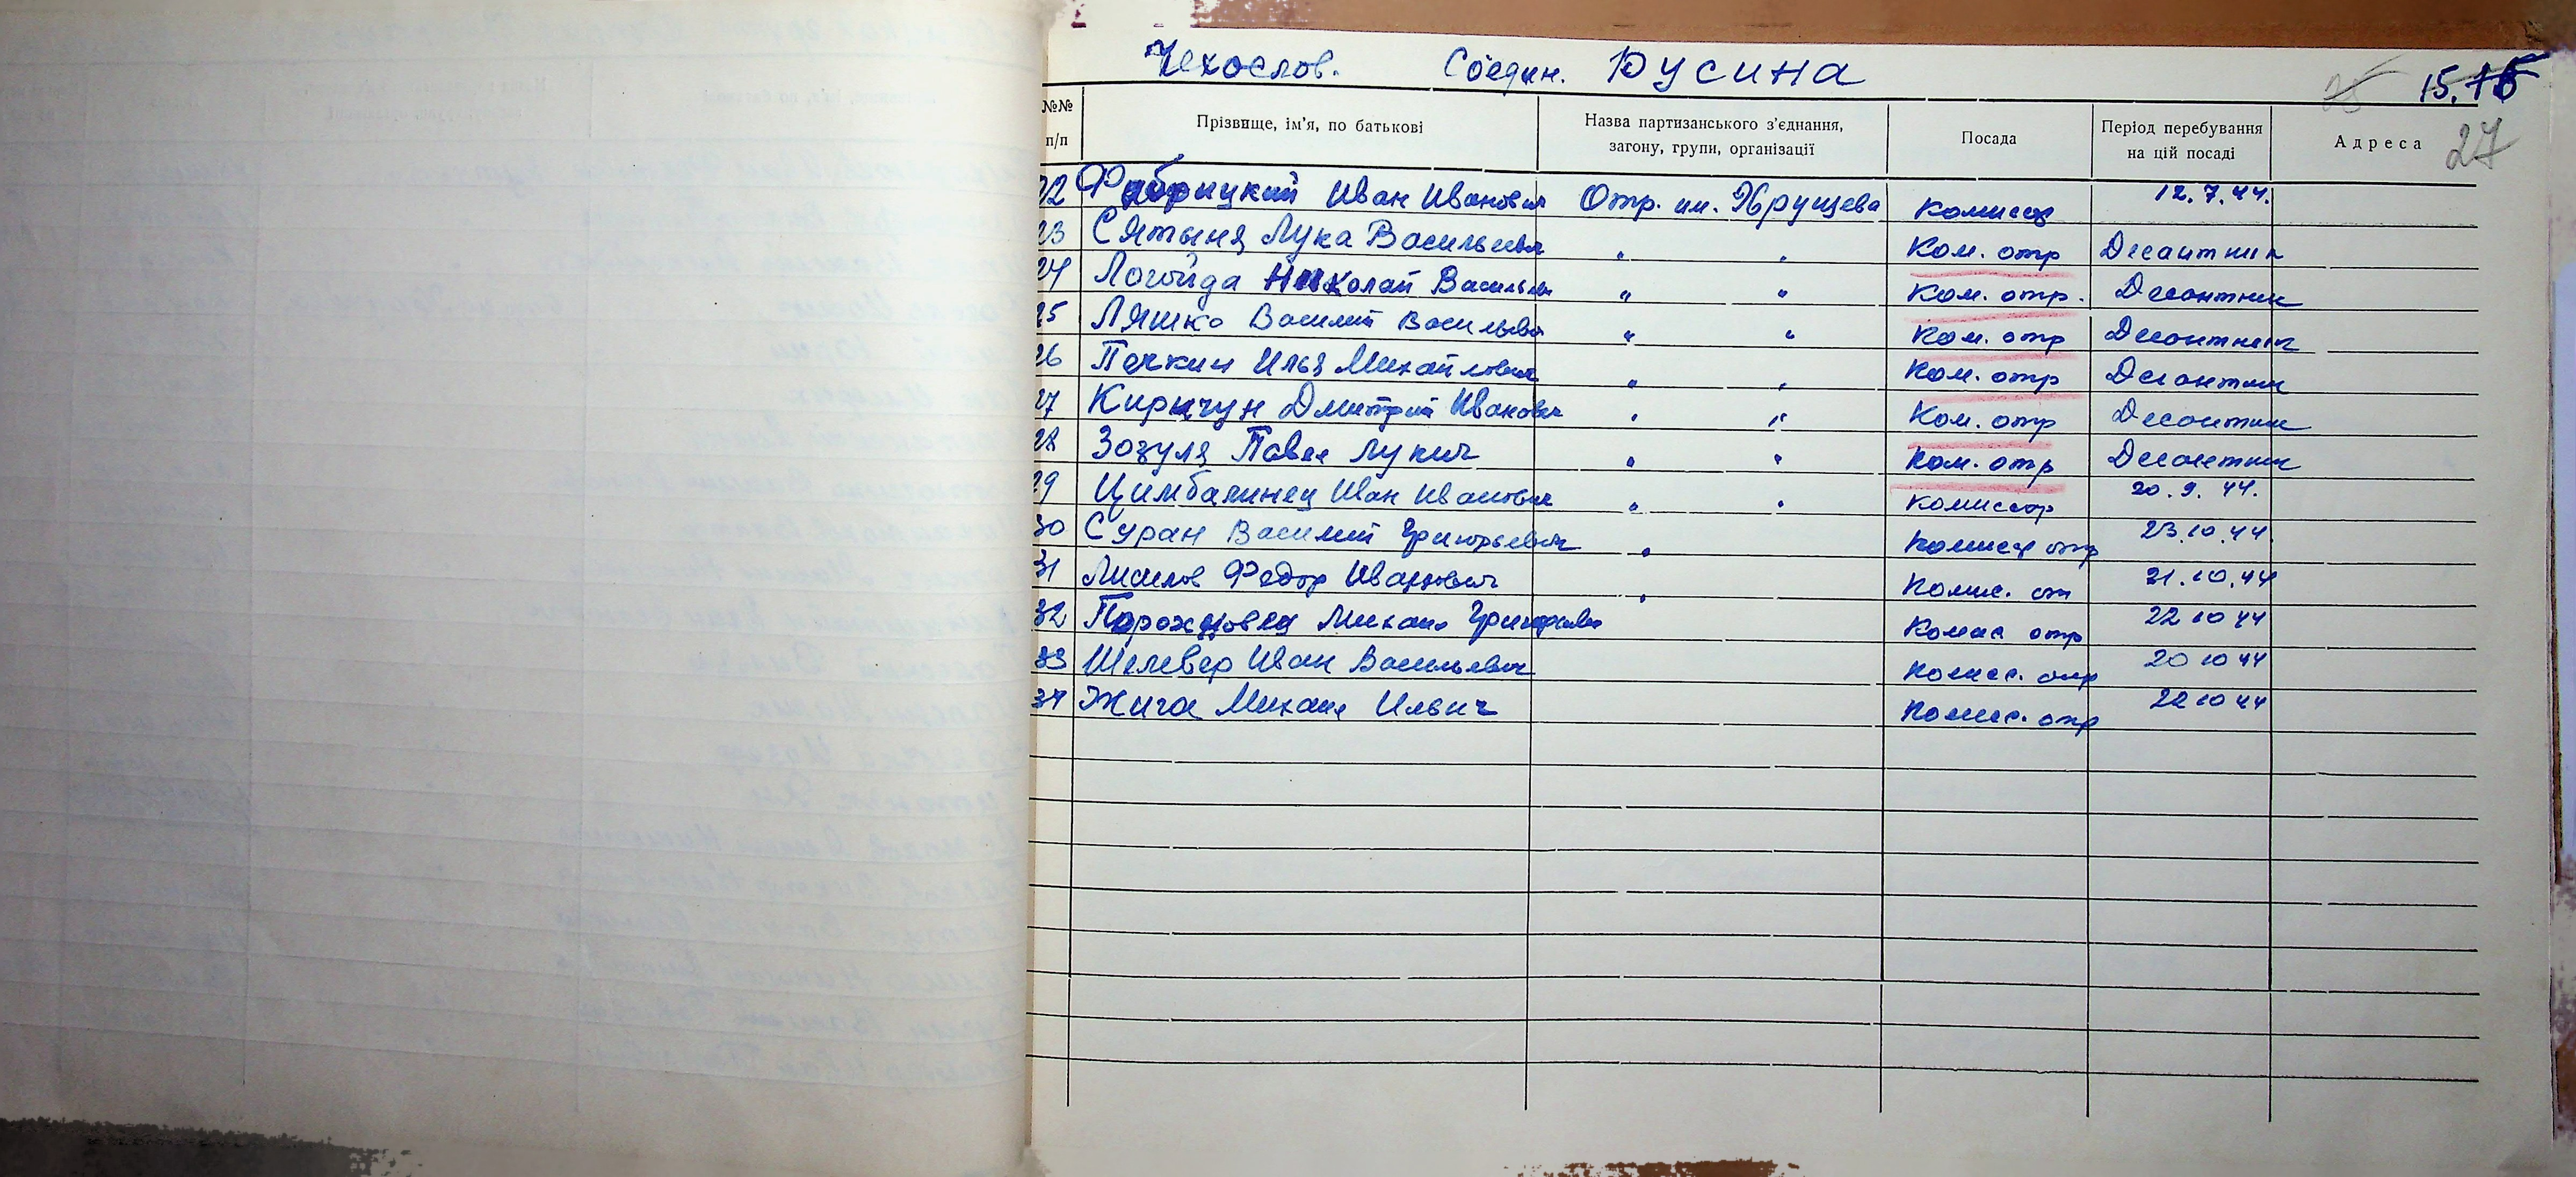 Чехослов. Соедин. Юусина
25 15.
27
№№ п/п Прізвище, ім'я, по батькові Назва партизанського з'єднання, загону, групи, організації Посада Період перебування на цій посаді Адреса
22 Фабрицкий Иван Иванович Отр. им. Хрущева комиссар 12.7.44.
23 Сятыня Лука Васильевич " " Ком. отр Десантник
24 Логойда Николай Васильевич " " Ком. отр. Десантник
25 Ляшко Василий Васильевич " " Ком. отр Десантник
26 Печкин Илья Михайлович " " Ком. отр Десантник
27 Киричун Дмитрий Иванович " " Ком. отр Десантник
28 Зозуля Павел Лукич " " Ком. отр Десантник
29 Цимбалинец Иван Иванович " " Комиссар 20.9.44.
30 Суран Василий Григорьевич " Комисар отр 23.10.44
31 Лисилов Федор Иванович " Комис. от 21.10.44
32 Михаил Григорьевич Комис отр 22 10 44
33 Шелевер Иван Васильевич Комисс. отр 20 10 44
34 Жига Михаил Ильич Комисс. отр 22 10 44